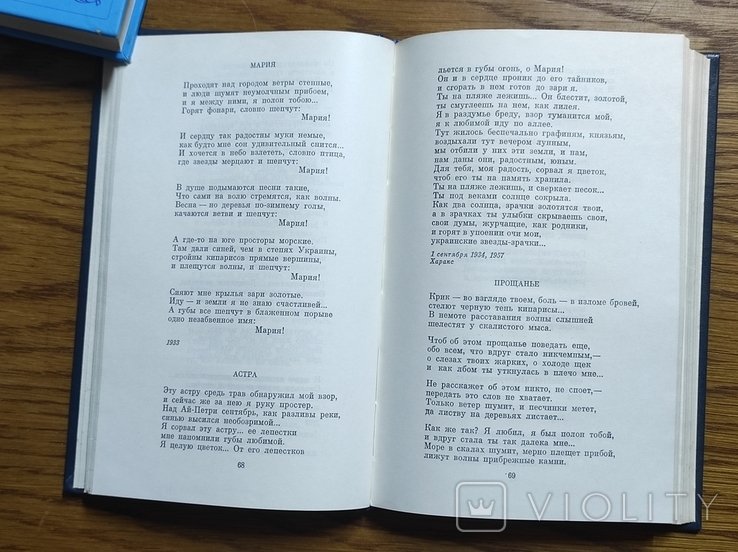 МАРИЯ
Проходят над городом ветры степные,
и люди шумят неумолчным прибоем,
и я между ними, я полон тобою...
Горят фонари, словно шепчут:
Мария!
И сердцу так радостны муки немые,
как будто мне сон удивительный снится...
И хочется в небо взлететь, словно птица,
где звезды мерцают и шепчут:
Мария!
В душе подымаются песни такие,
Что сами на волю стремятся, как волны.
Весна — но деревья по-зимнему голы,
качаются ветви и шепчут:
Мария!
А где-то на юге просторы морские.
Там дали синей, чем в степях Украины,
стройны кипарисов прямые вершины,
и плещутся волны, и шепчут:
Мария!
Сияют мне крылья зари золотые.
Иду — и земли я не знаю счастливей...
А губы все шепчут в блаженном порыве
одно незабвенное имя:
Мария!
1933
АСТРА
Эту астру средь трав обнаружил мой взор,
и сейчас же за нею я руку простер.
Над Ай-Петри сентябрь, как разливы реки,
синью высился необозримой...
Я сорвал эту астру... ее лепестки
мне напомнили губы любимой.
Я целую цветок... От его лепестков
68
льется в губы огонь, о Мария!
Он и в сердце проник до его тайников,
и сгорать в нем готов до зари я.
Ты на пляже лежишь... Он блестит, золотой,
ты смуглеешь на нем, как лилея.
Я в раздумье бреду, взор туманится мой,
я к любимой иду по аллее.
Тут жилось беспечально графиням, князьям,
воздыхали тут вечером лунным,
мы отбили у них эти земли, и нам,
нам даны они, радостным, юным.
Для тебя, моя радость, сорвал я цветок,
чтоб его ты на память хранила.
Ты на пляже лежишь, и сверкает песок...
Ты под веками солнце сокрыла.
Как два солнца, зрачки золотятся твои,
а в зрачках ты улыбки скрываешь свои,
свои думы, журчащие, как родники,
и горят в упоении очи мои,
украинские звезды-зрачки...
1 сентября 1934, 1957
Харакс
ПРОЩАНЬЕ
Крик — во взгляде твоем, боль — в изломе бровей,
стелют черную тень кипарисы...
В немоте расставания волны слышней
шелестят у скалистого мыса.
Чтоб об этом прощанье поведать еще,
обо всем, что вдруг стало никчемным,—
о слезах твоих жарких, о холоде щек
и как лбом ты уткнулась в плечо мне...
Не расскажет об этом никто, не споет,—
передать это слов не хватает.
Только ветер шумит, и песчинки метет,
да листву на деревьях листает...
Как же так? Я любил, я был полон тобой,
и вдруг стала ты так далека мне...
Море в скалах шумит, мерно плещет прибой,
лижут волны прибрежные камни.
69
VIOLITY